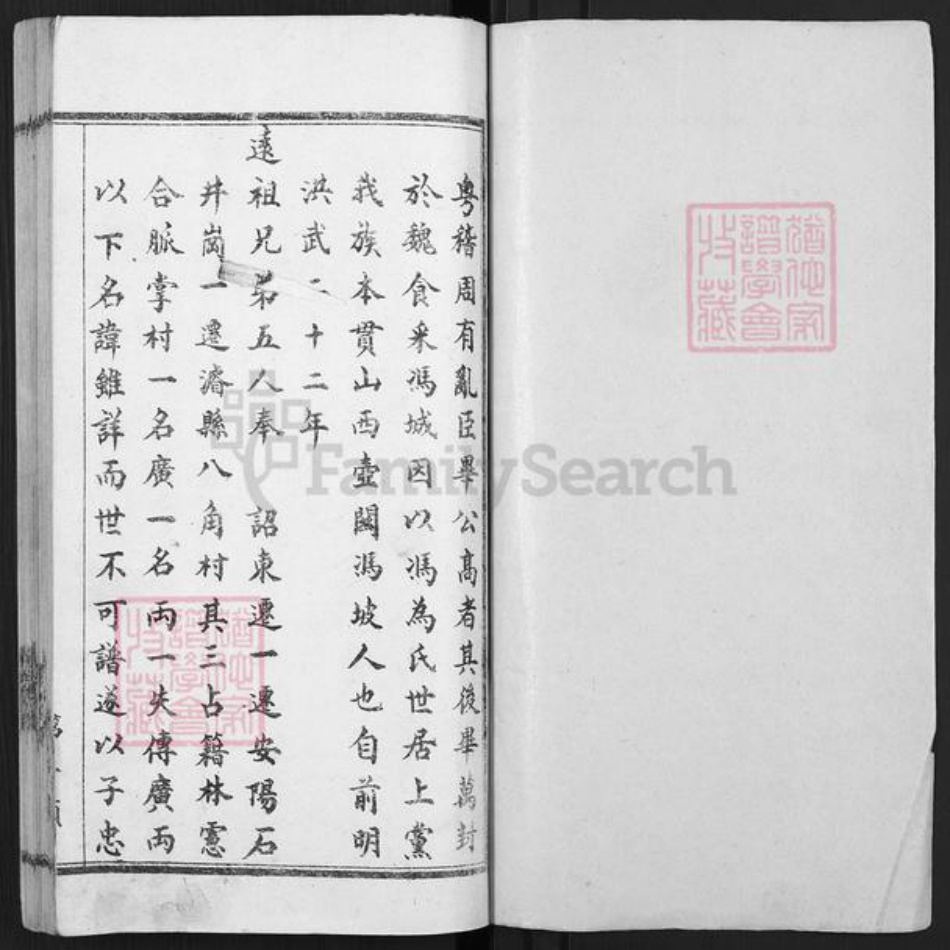 粤稽周有亂臣畢公高者其後畢萬封
於魏食采馮城因以馮為氏世居上黨
我族本貫山西壺關馮坡人也自前明
洪武二十二年
遠祖兄弟五人奉 詔東遷一遷安陽石
井崗一遷濬縣八角村其三占籍林慮
合脈掌村一名廣一名両一失傳廣両
以下名諱雖詳而世不可譜遂以子忠
譜學會
收藏
譜學會
收藏
FamilySearch